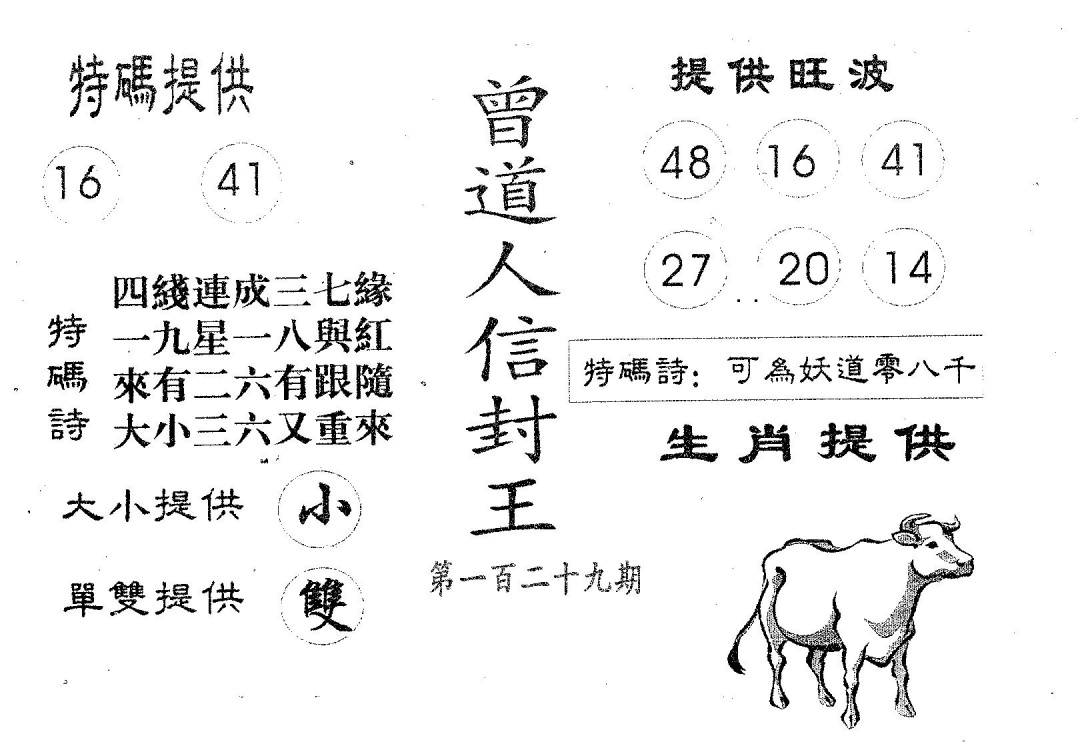 特碼提供
16 41
特碼詩
四綫連成三七緣
一九星一八與紅
來有二六有跟隨
大小三六又重來
大小提供 小
單雙提供 雙
曾道人信封王
第一百二十九期
提供旺波
48 16 41
27 20 14
特碼詩：可為妖道零八千
生肖提供